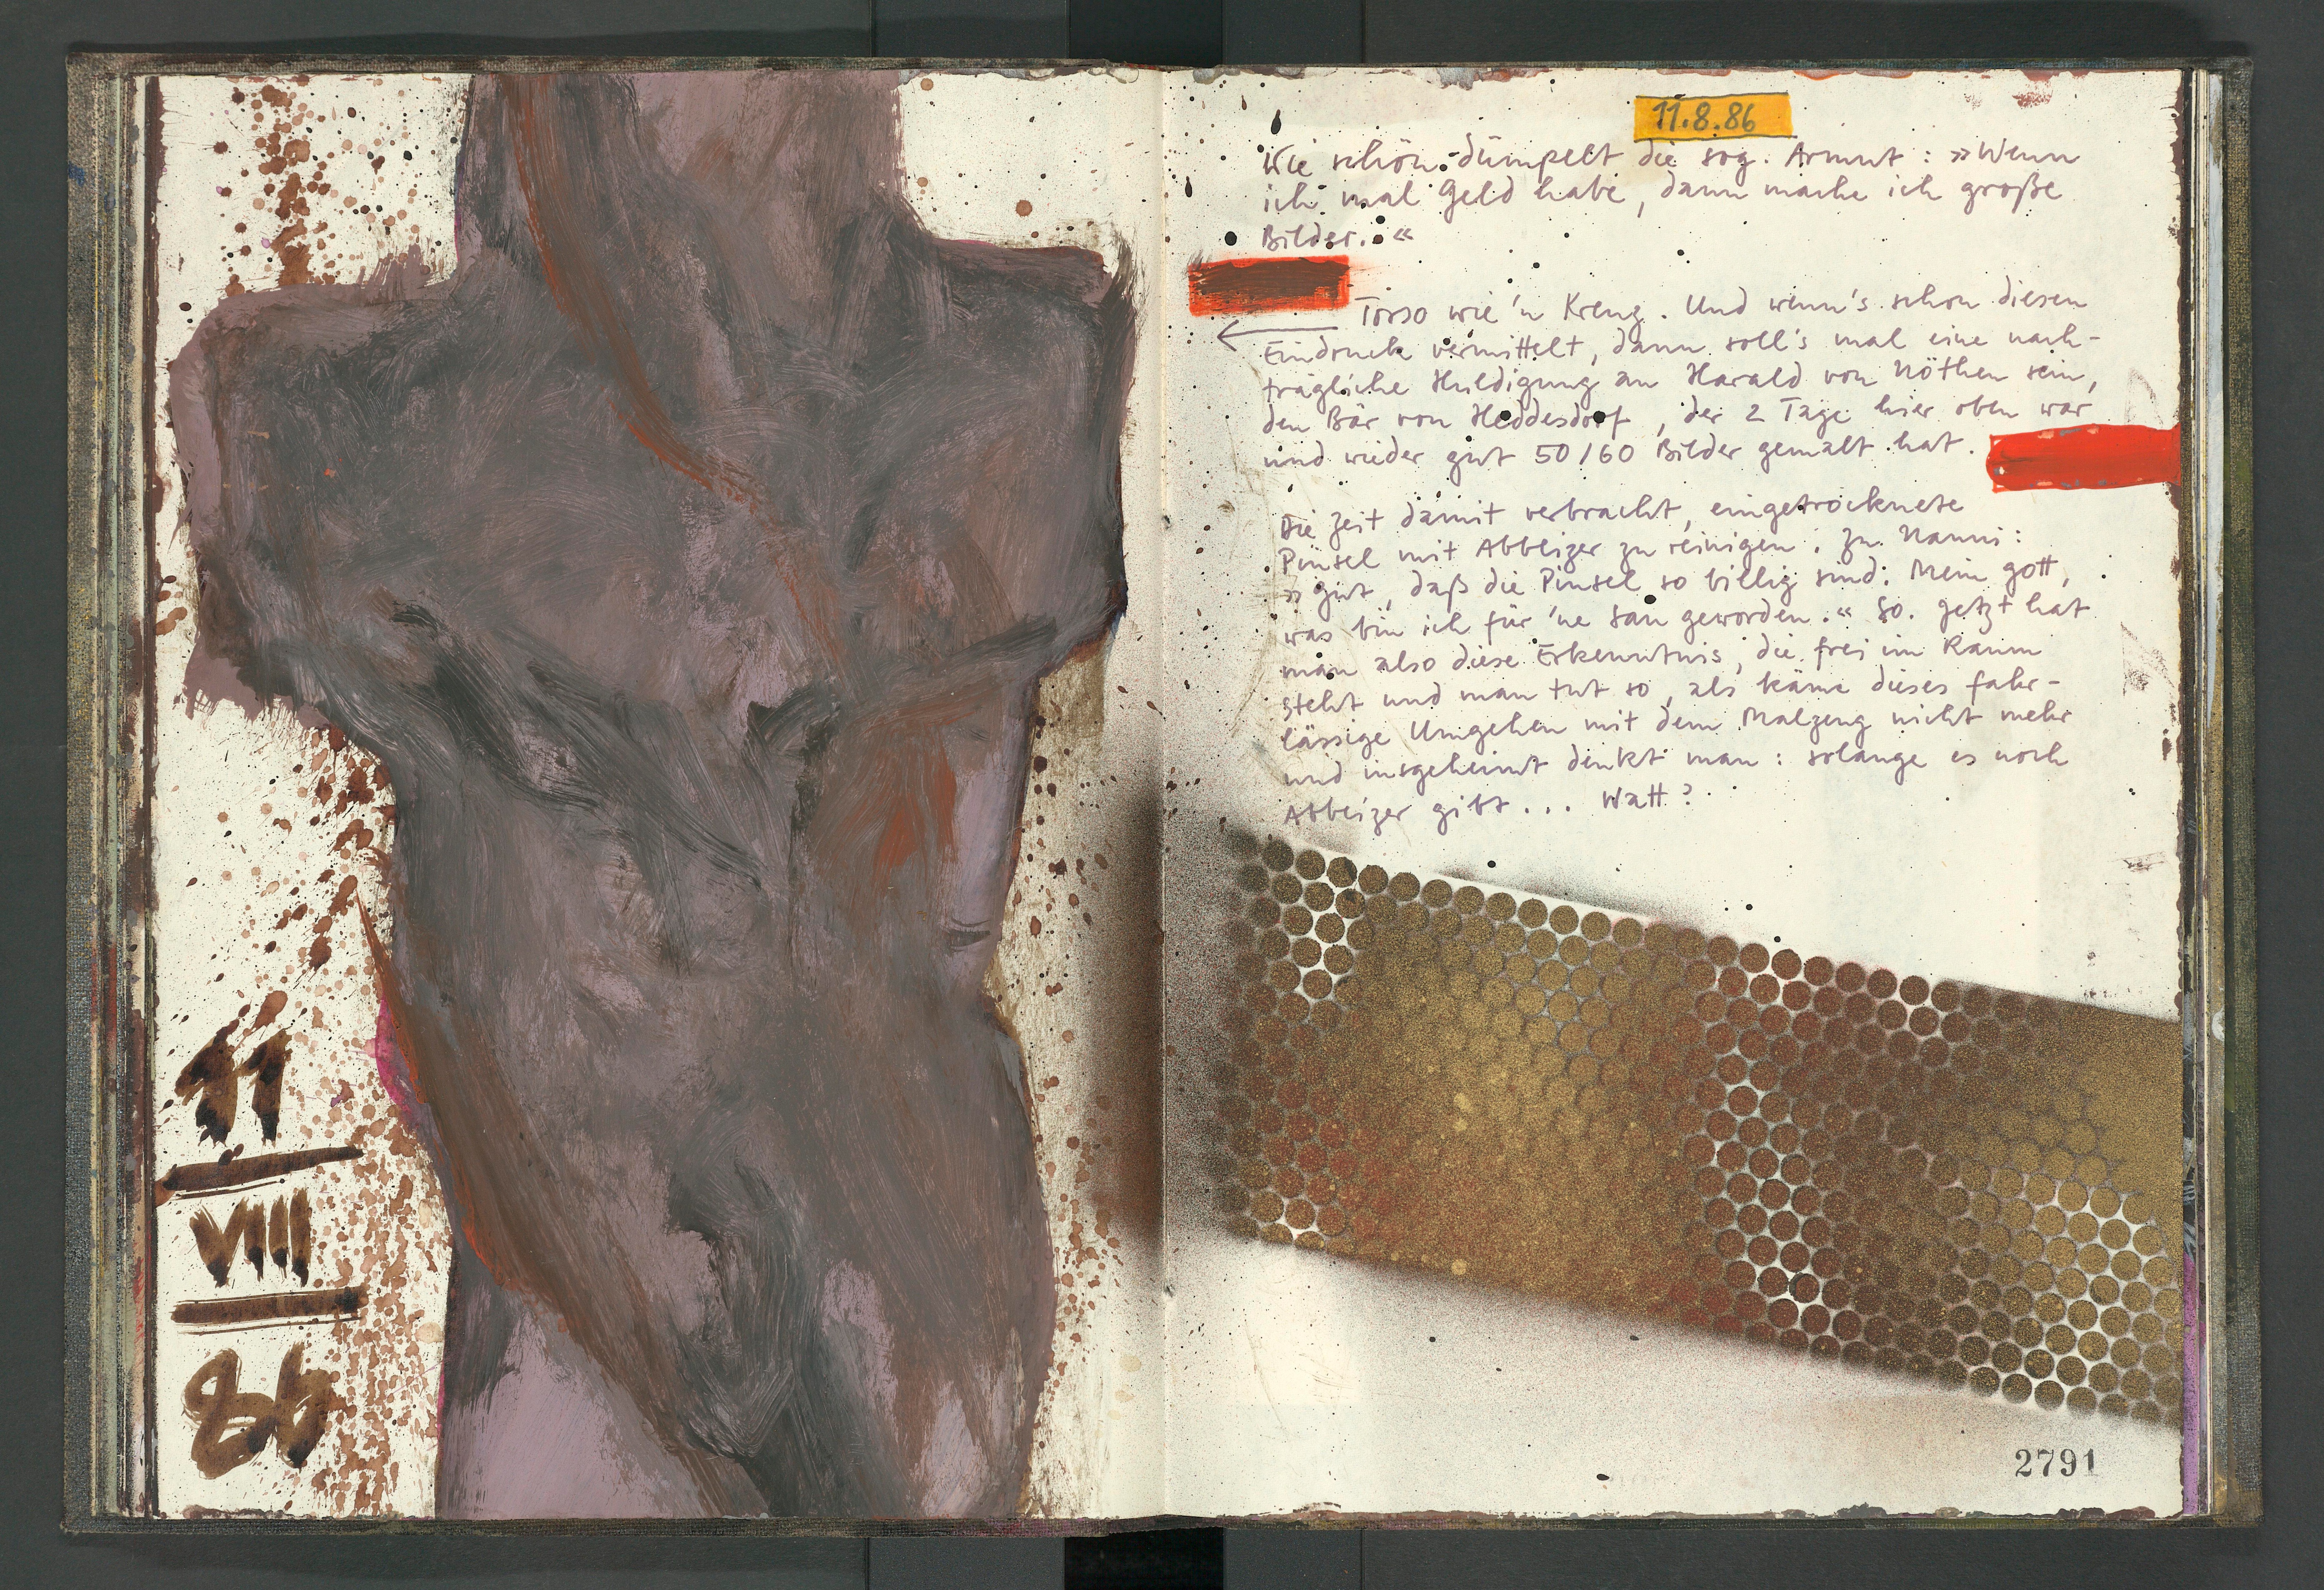 11
VIII
86
11.8.86
Wie schön dümpelt die sog. Armut : »Wenn
ich mal Geld habe, dann mache ich große
Bilder.«
Torso wie 'n Kreuz. Und wenn's schon diesen
Eindruck vermittelt, dann soll's mal eine nach-
trägliche Huldigung an Harald von Nöthen sein,
den Bär von Heddesdorf, der 2 Tage hier oben war
und wieder gut 50/60 Bilder gemalt hat.
Die Zeit damit verbracht, eingetrocknete
Pinsel mit Abbeizer zu reinigen. Zu Nanni:
»gut, daß die Pinsel so billig sind. Mein gott,
was bin ich für 'ne Sau geworden.« So. Jetzt hat
man also diese Erkenntnis, die frei im Raum
steht und man tut so, als käme dieses fahr-
lässige Umgehen mit dem Malzeug nicht mehr
und insgeheimt denkt man : solange es noch
Abbeizer gibt... Watt?
2791